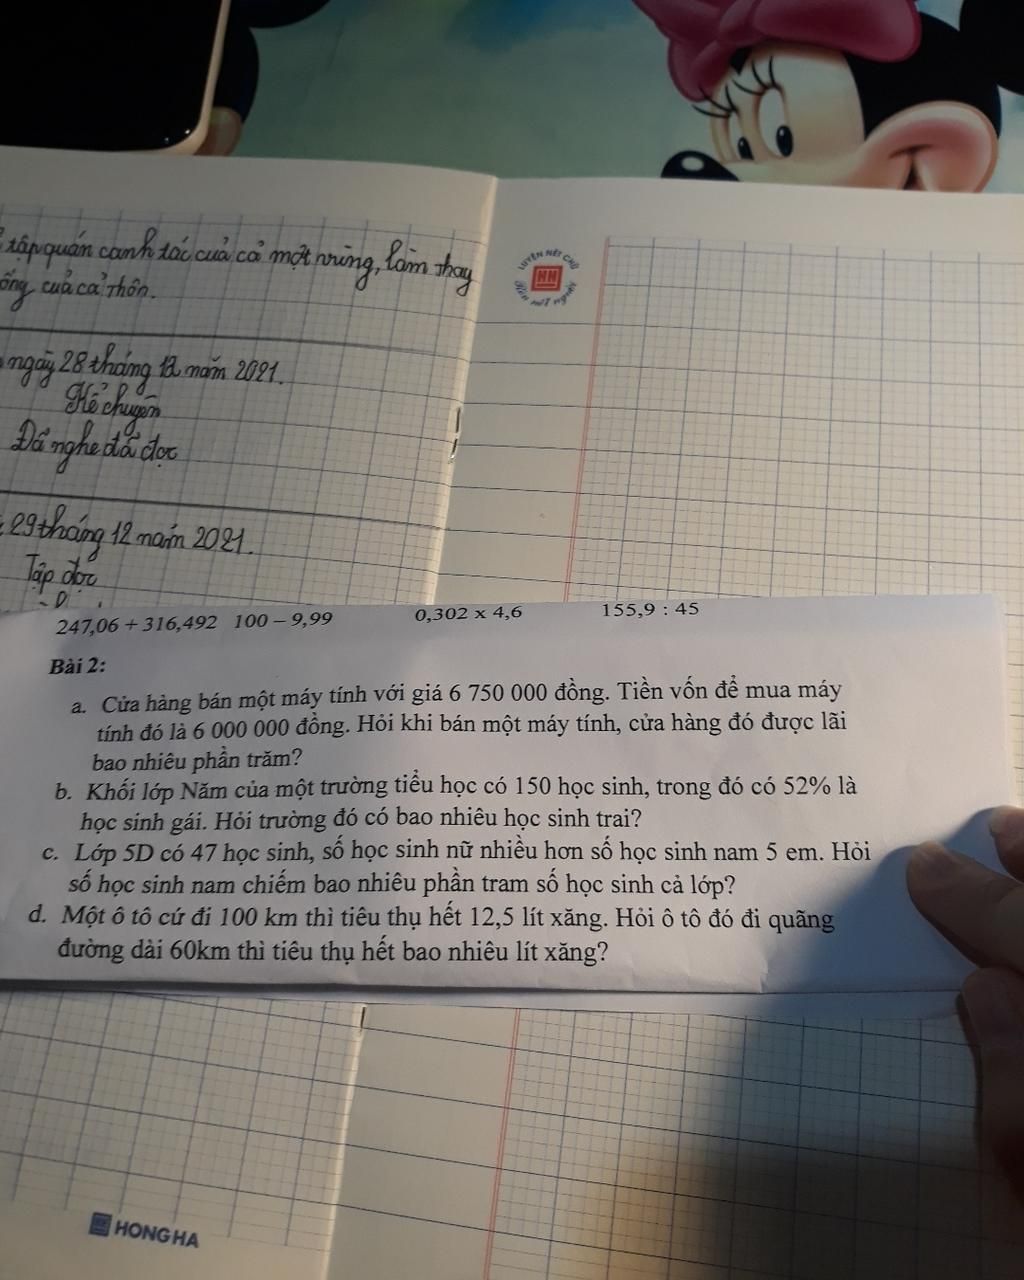 tập quán canh tác của cả một vùng, làm thay
của cả thôn.
ngày 28 tháng 12 năm 2021.
Kể chuyện
Đã nghe đã đọc
29 tháng 12 năm 2021.
Tập đọc
LUYỆN NÉT CHỮ
HH
Rèn nết người
247,06 + 316,492 100 – 9,99 0,302 x 4,6 155,9 : 45
Bài 2:
a. Cửa hàng bán một máy tính với giá 6 750 000 đồng. Tiền vốn để mua máy
tính đó là 6 000 000 đồng. Hỏi khi bán một máy tính, cửa hàng đó được lãi
bao nhiêu phần trăm?
b. Khối lớp Năm của một trường tiểu học có 150 học sinh, trong đó có 52% là
học sinh gái. Hỏi trường đó có bao nhiêu học sinh trai?
c. Lớp 5D có 47 học sinh, số học sinh nữ nhiều hơn số học sinh nam 5 em. Hỏi
số học sinh nam chiếm bao nhiêu phần tram số học sinh cả lớp?
d. Một ô tô cứ đi 100 km thì tiêu thụ hết 12,5 lít xăng. Hỏi ô tô đó đi quãng
đường dài 60km thì tiêu thụ hết bao nhiêu lít xăng?
HONG HA